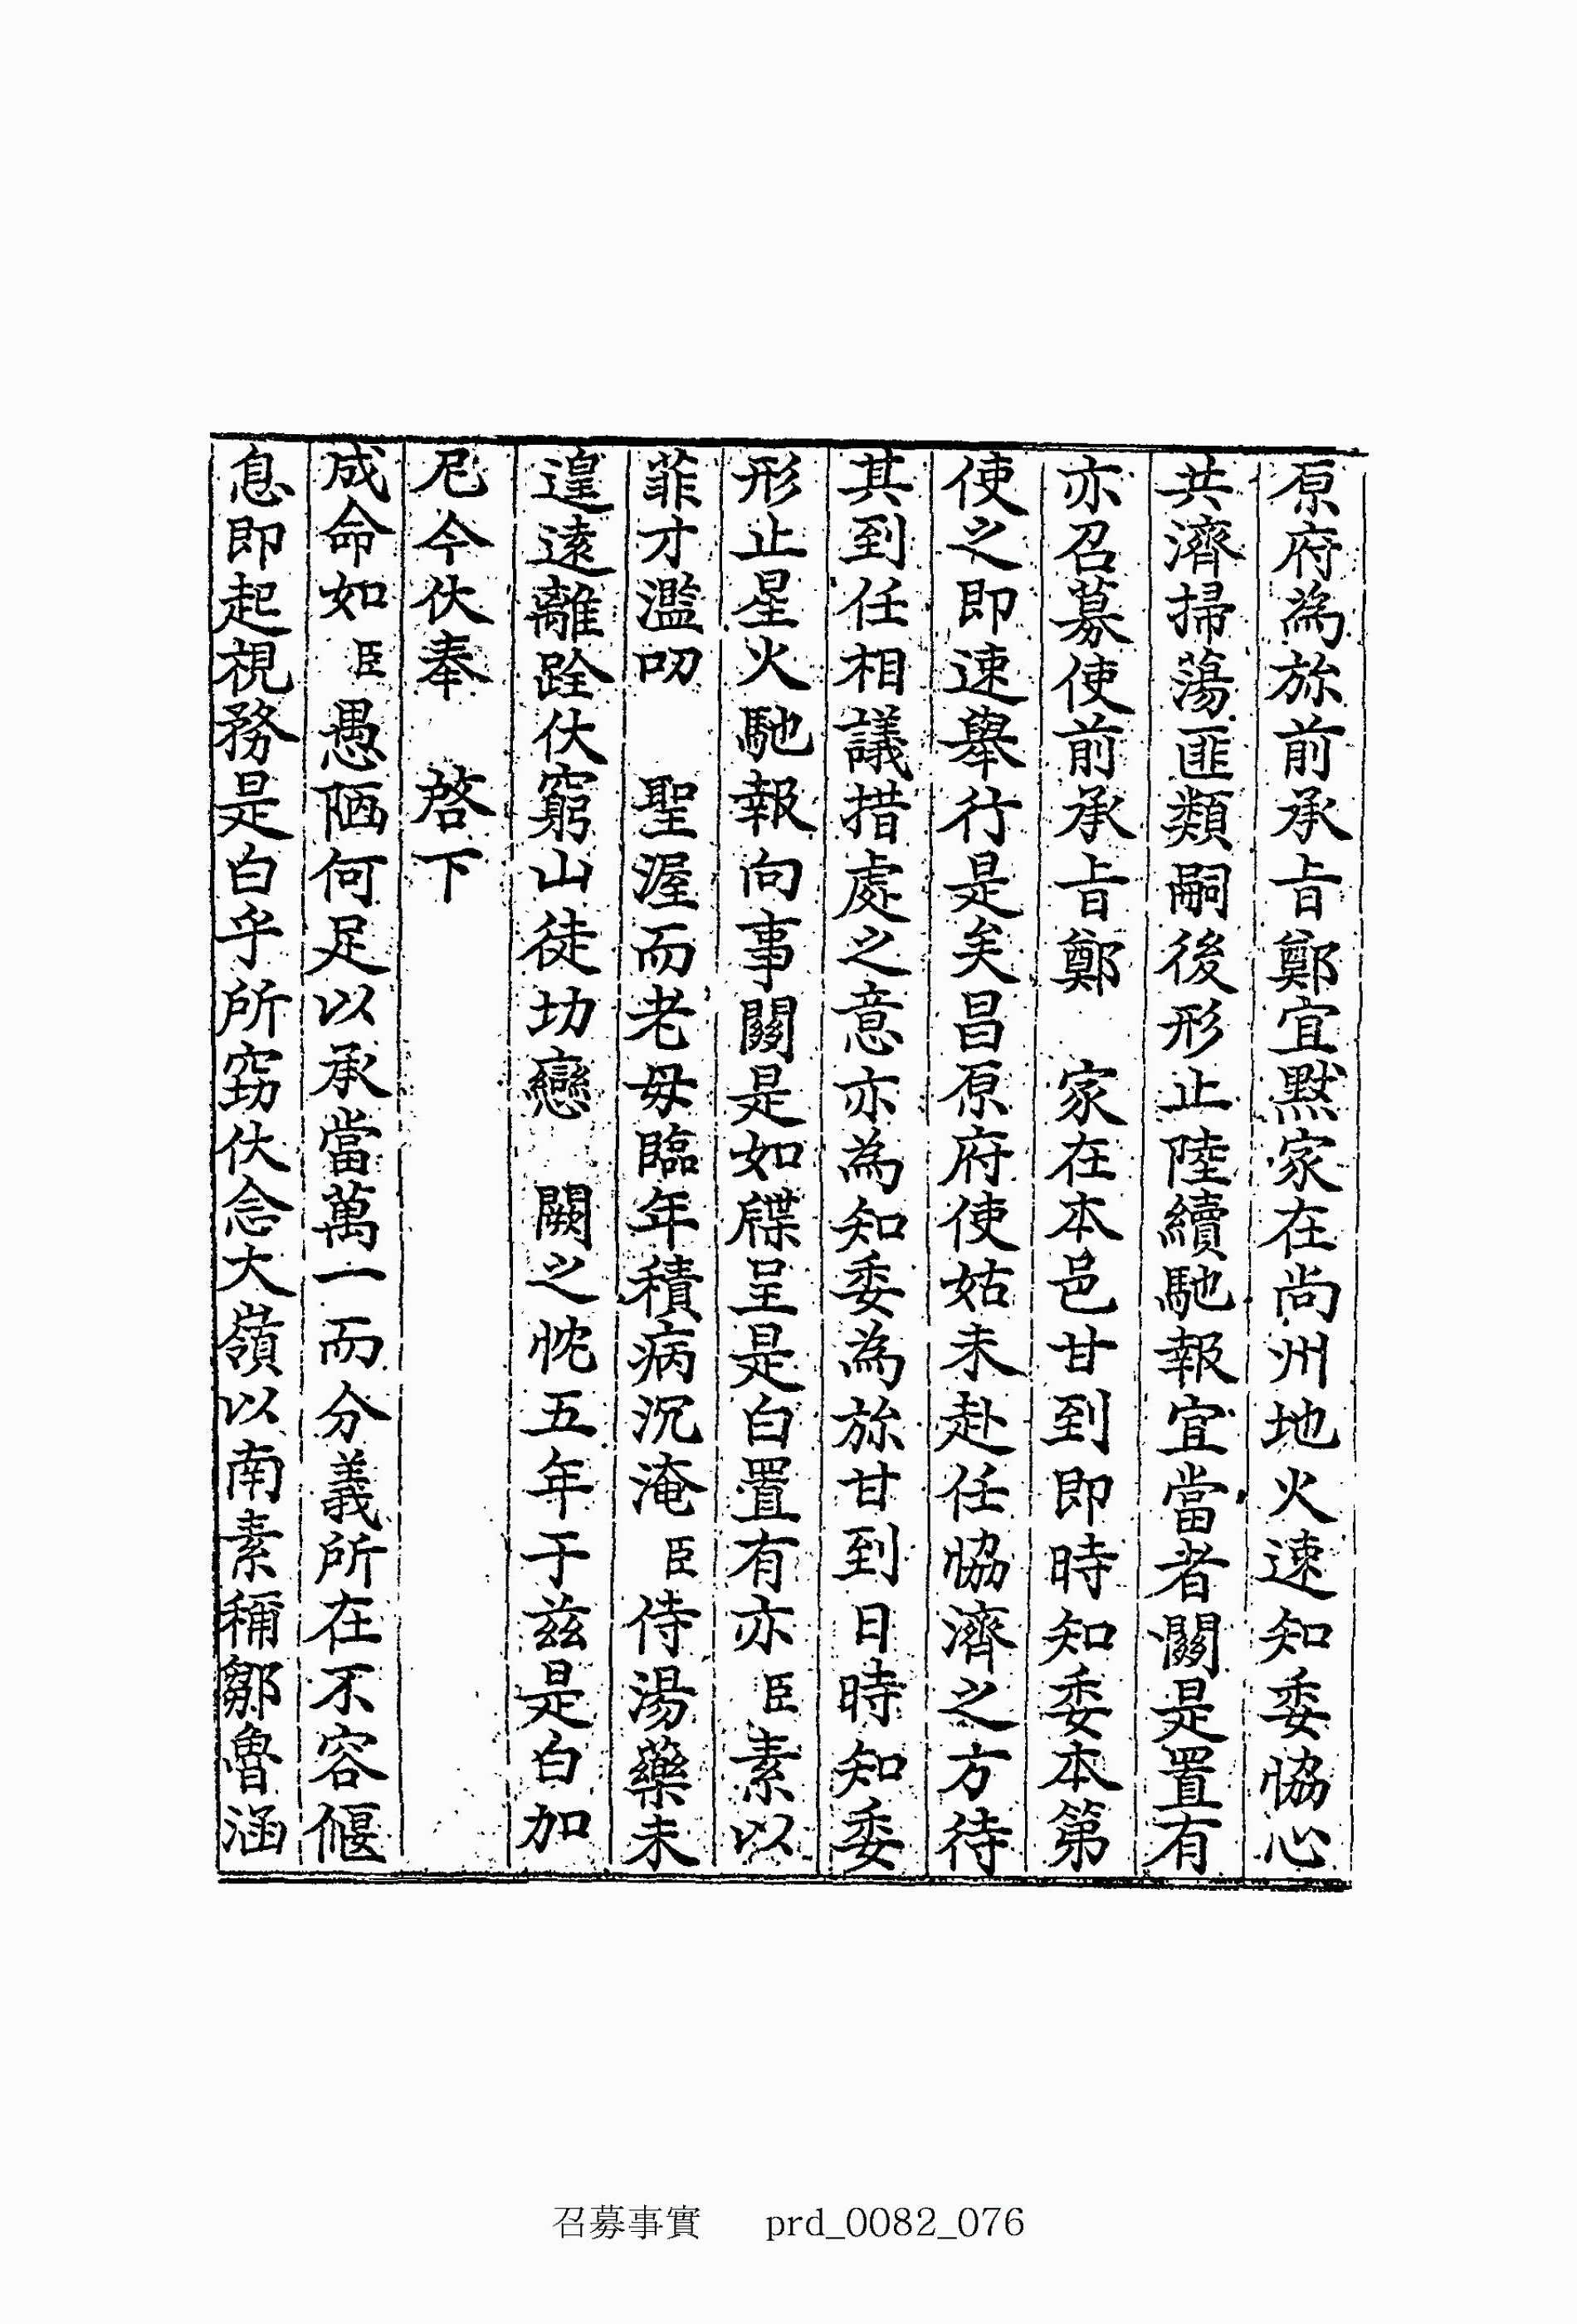 原府為旀前承旨鄭宜默家在尙州地火速知委恊心
共濟掃蕩匪類嗣後形止陸續馳報宜當者關是置有
亦召募使前承旨鄭 家在本邑甘到卽時知委本第
使之卽速舉行是矣昌原府使姑未赴任恊濟之方待
其到任相議措處之意亦為知委為旀甘到日時知委
形止星火馳報向事關是如牒呈是白置有亦臣素以
菲才濫叨 聖渥而老毋臨年積病沉淹臣侍湯藥未
遑遠離跧伏窮山徒功戀 闕之忱五年于兹是白加
尼今伏奉 啓下
成命如臣愚陋何足以承當萬一而分義所在不容偃
息卽起視務是白乎所窃伏念大嶺以南素稱鄒魯涵
召募事實 prd_0082_076